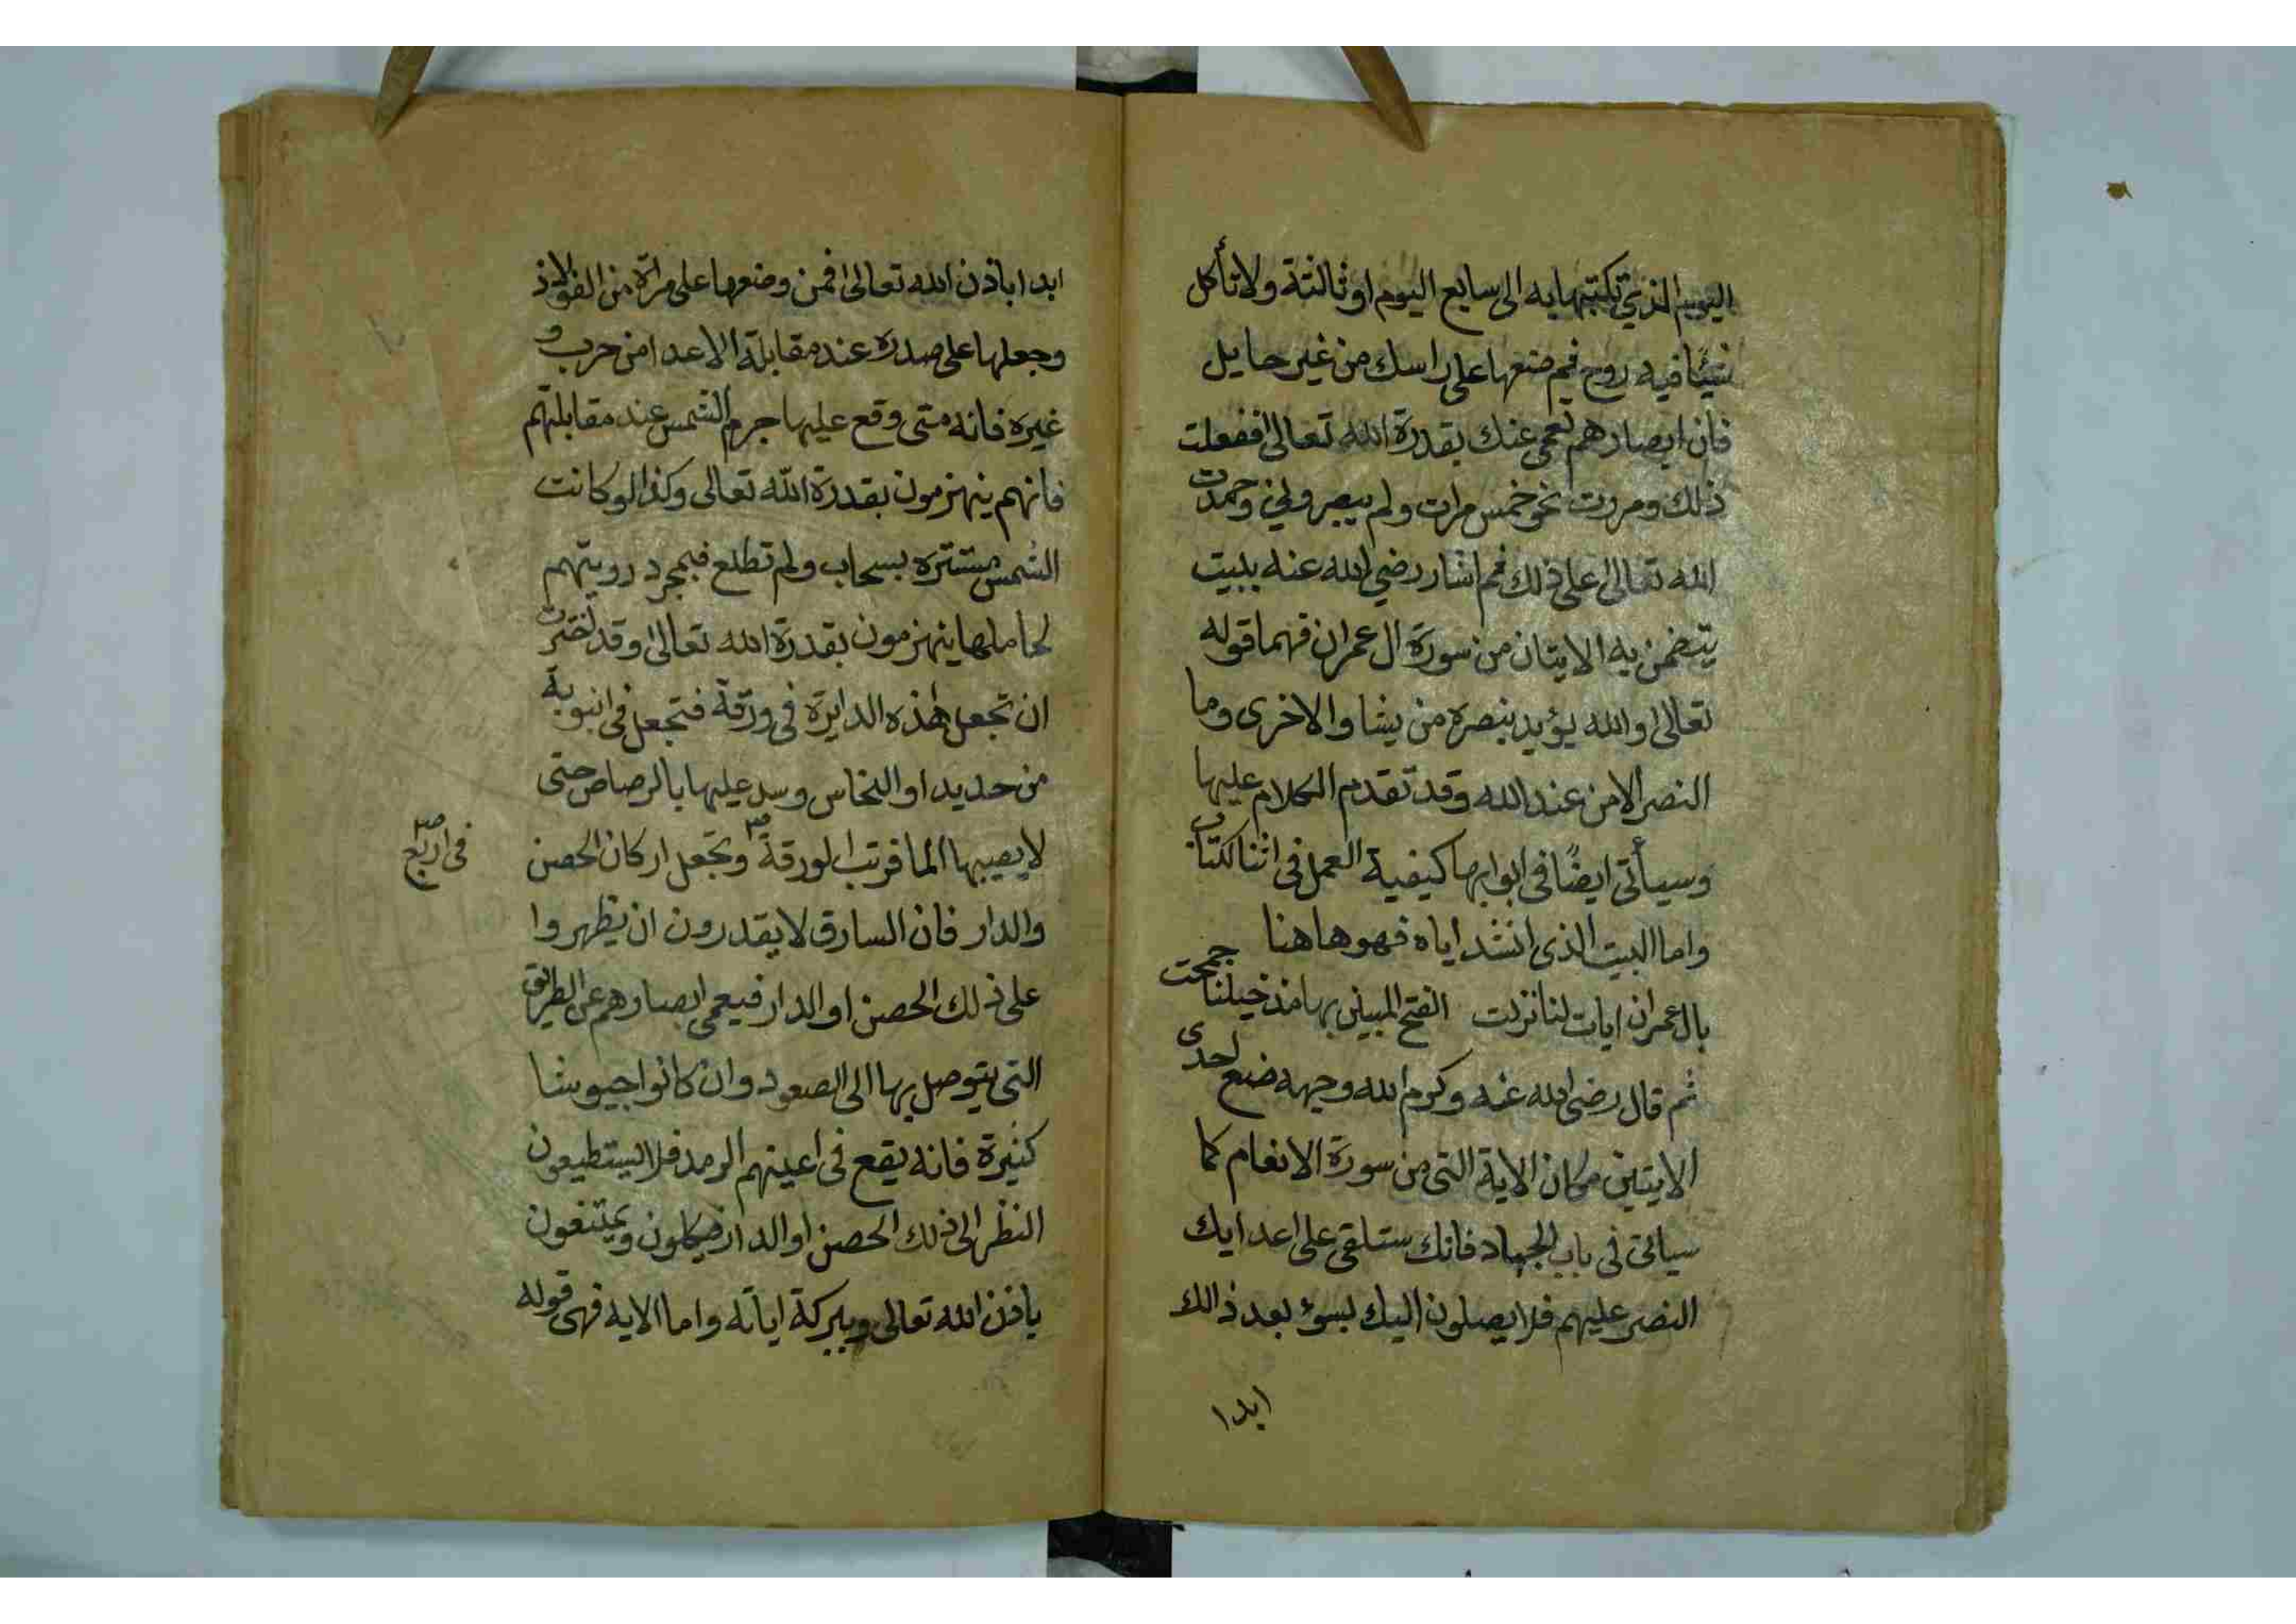 اليوم الذي تكتبها به الى سابع اليوم او ثالثة ولا تأكل
شيئًا فيه روح ثم ضعها على راسك من غير حايل
فان ابصارهم تعمى عنك بقدرة الله تعالى ففعلت
ذلك ومررت نحو خمس مرات ولم يبصروني وحمدت
الله تعالى على ذلك ثم اشار رضي الله عنه ببيت
يتضمن به الايتان من سورة ال عمران فهما قوله
تعالى والله يؤيد بنصره من يشا والاخرى وما
النصر الا من عند الله وقد تقدم الكلام عليها
وسيأتى ايضًا فى ابوابها كيفية العمل فى اثنا الكتاب
واما البيت الذى انشد اياه فهو هاهنا
بال عمران ايات لنا نزلت الفتح المبين بها مذ خيلنا جمحت
ثم قال رضى الله عنه وكرم الله وجهه ضع احدى
الايتين مكان الاية التى من سورة الانعام كما
سياتى فى باب الجهاد فانك ستلقى على اعدايك
النصر عليهم فلا يصلون اليك بسوء بعد ذالك
ابدا
ابدا باذن الله تعالى فمن وضعها على مرآة من الفولاذ
وجعلها على صدره عند مقابلة الاعدا من حرب و
غيره فانه متى وقع عليها جرم الشمس عند مقابلتهم
فانهم ينهزمون بقدرة الله تعالى وكذا لو كانت
الشمس مستتره بسحاب ولم تطلع فبمجرد رويتهم
لحاملها ينهزمون بقدرة الله تعالى وقد اختبرت
ان تجعل هذه الدايرة فى ورقة فتجعل فى انبوبة
من حديد او النحاس وسد عليها بالرصاص حتى
لا يصيبها الما فرتب الورقة وتجعل اركان الحصن
فى اربع
والدار فان السارق لا يقدرون ان يظهروا
على ذلك الحصن او الدار فيعمى ابصارهم عن الطريق
التى يتوصل بها الى الصعود وان كانوا جيوشا
كثيرة فانه يقع فى اعينهم الرمد فلا يستطيعون
النظر الى ذلك الحصن او الدار فيكلون ويمتنعون
باذن الله تعالى وببركة اياته واما الايه فهى قوله